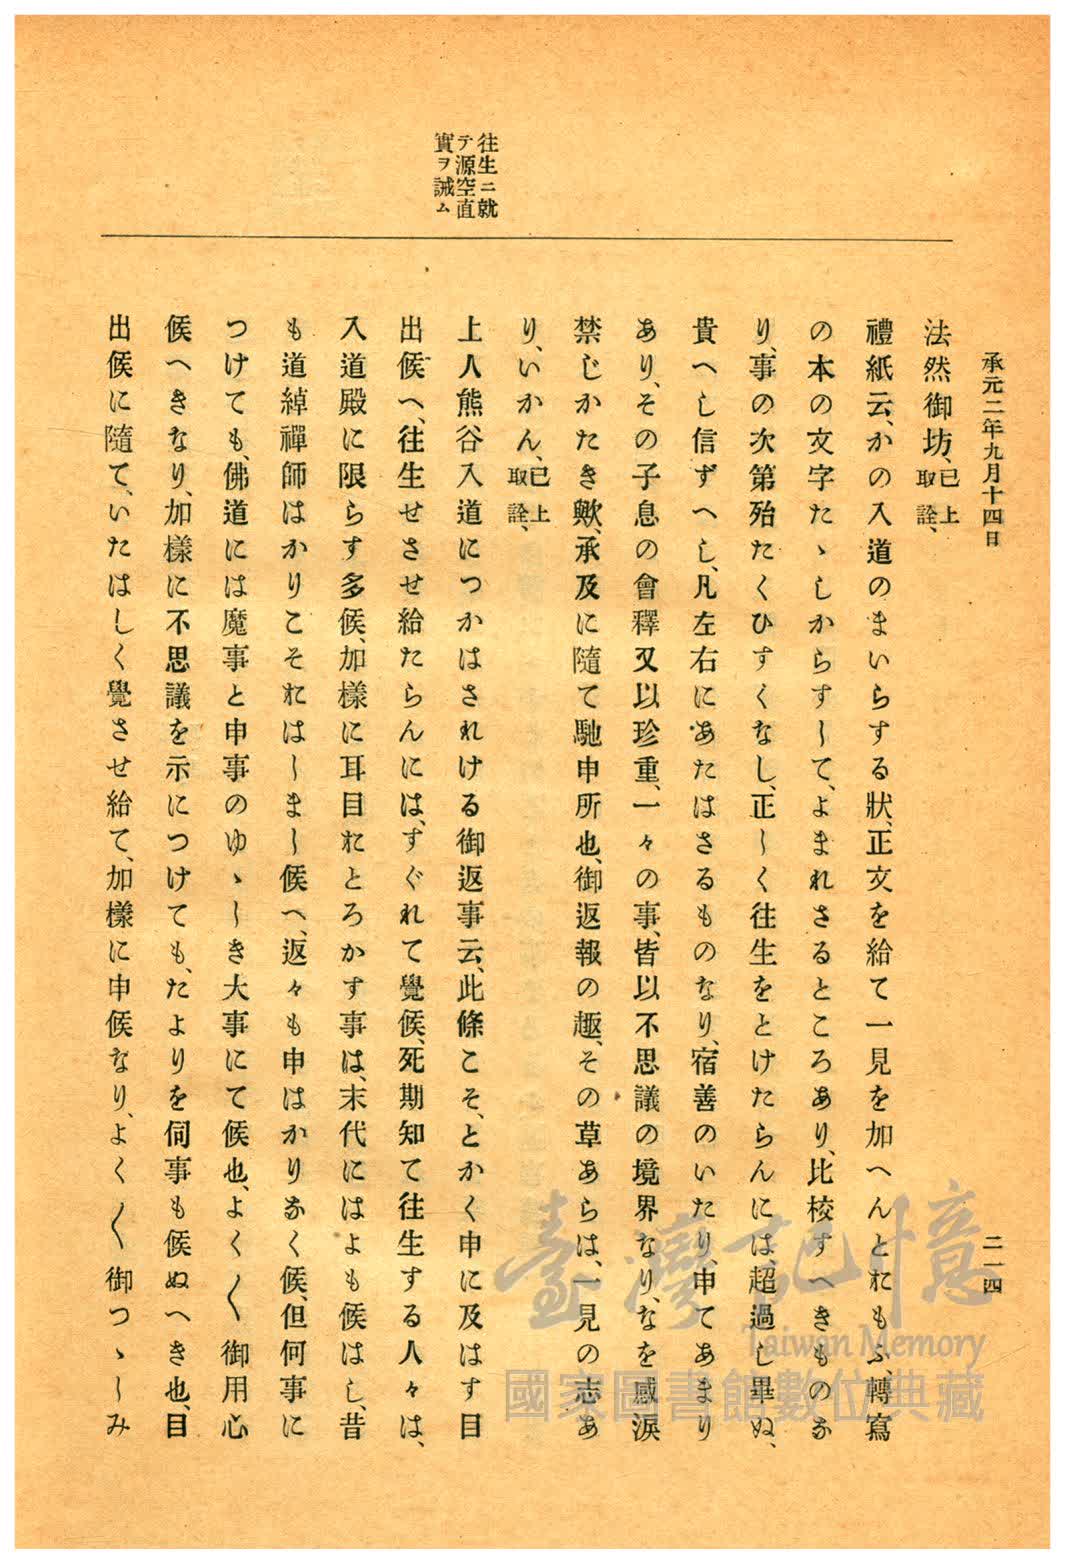 承元二年九月十四日
二一四
往生ニ就
テ源空直
實ヲ誡ム
法然御坊、已上取詮、
禮紙云、かの入道のまいらする狀、正文を給て一見を加へんとおもふ、轉寫
の本の文字たゝしからすして、よまれさるところあり、比校すへきものな
り、事の次第殆たくひすくなし、正しく往生をとけたらんには、超過し畢ぬ、
貴へし信ずへし、凡左右にあたはさるものなり、宿善のいたり、申てあまり
あり、その子息の會釋又以珍重、一々の事、皆以不思議の境界なり、なを感淚
禁じかたき歟、承及に隨て馳申所也、御返報の趣、その草あらは、一見の志あ
り、いかん、已上取詮、
上人熊谷入道につかはされける御返事云、此條こそ、とかく申に及はす目
出候へ、往生せさせ給たらんには、すぐれて覺候、死期知て往生する人々は、
入道殿に限らす多候、加樣に耳目おとろかす事は、末代にはよも候はし、昔
も道綽禪師はかりこそおはしまし候へ、返々も申はかりなく候、但何事に
つけても、佛道には魔事と申事のゆゝしき大事にて候也、よく〳〵御用心
候へきなり、加樣に不思議を示につけても、たよりを伺事も候ぬへき也、目
出候に隨て、いたはしく覺させ給て、加樣に申候なり、よく〳〵御つゝしみ
臺灣記憶
Taiwan Memory
國家圖書館數位典藏